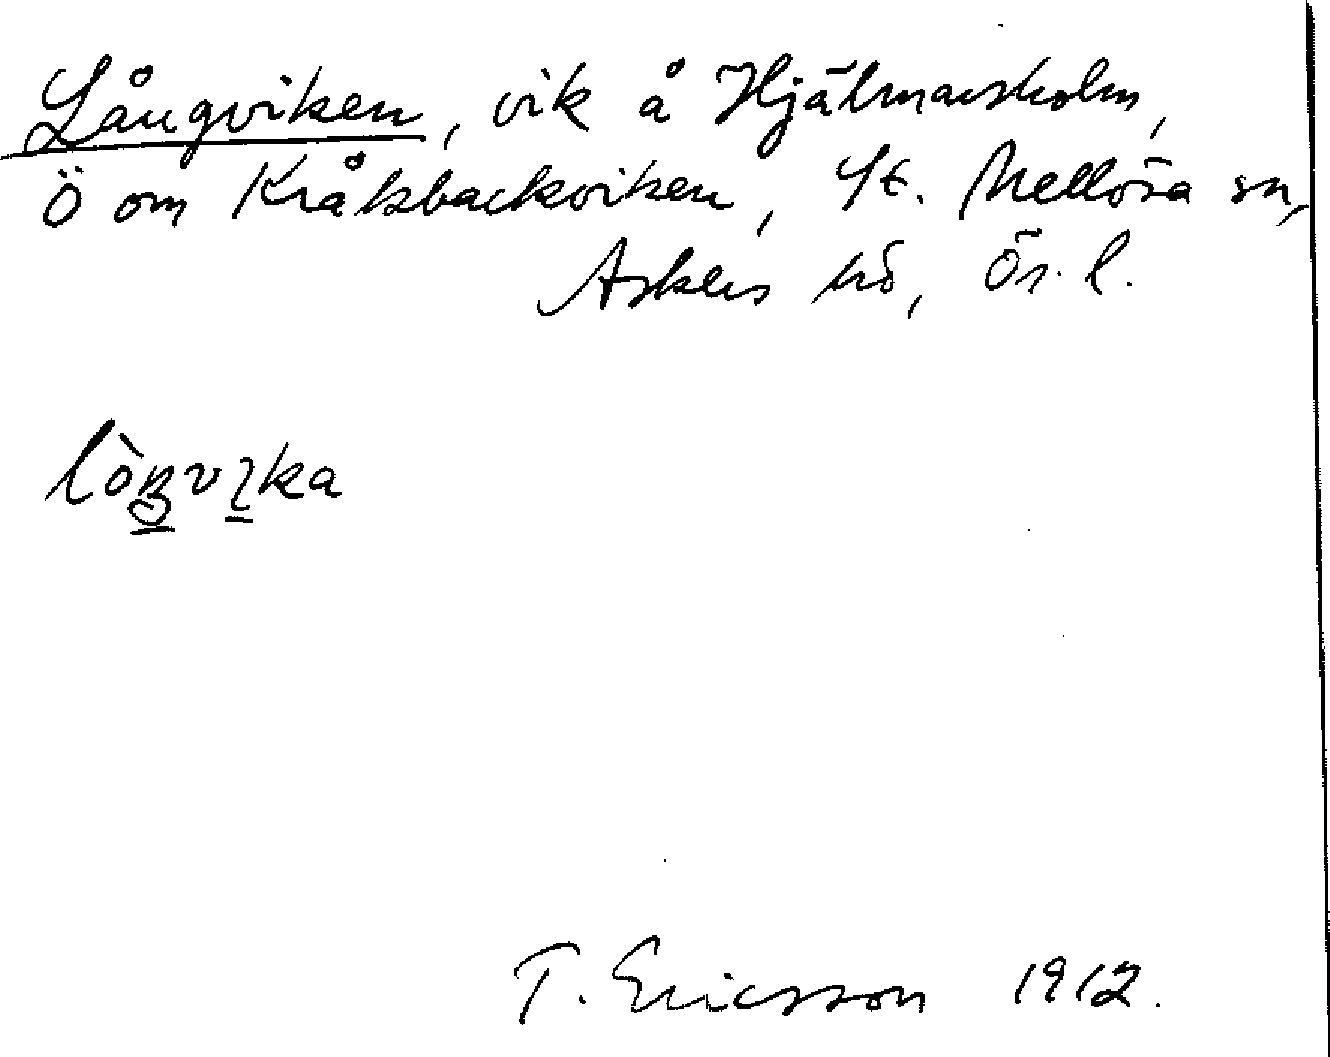 Långviken, vik å Hjälmarsholm,
Ö om Kråkbackviken, St. Mellösa sn,
Askers hd, Ör. l.
lòŋvɩka
T. Ericsson 1912.